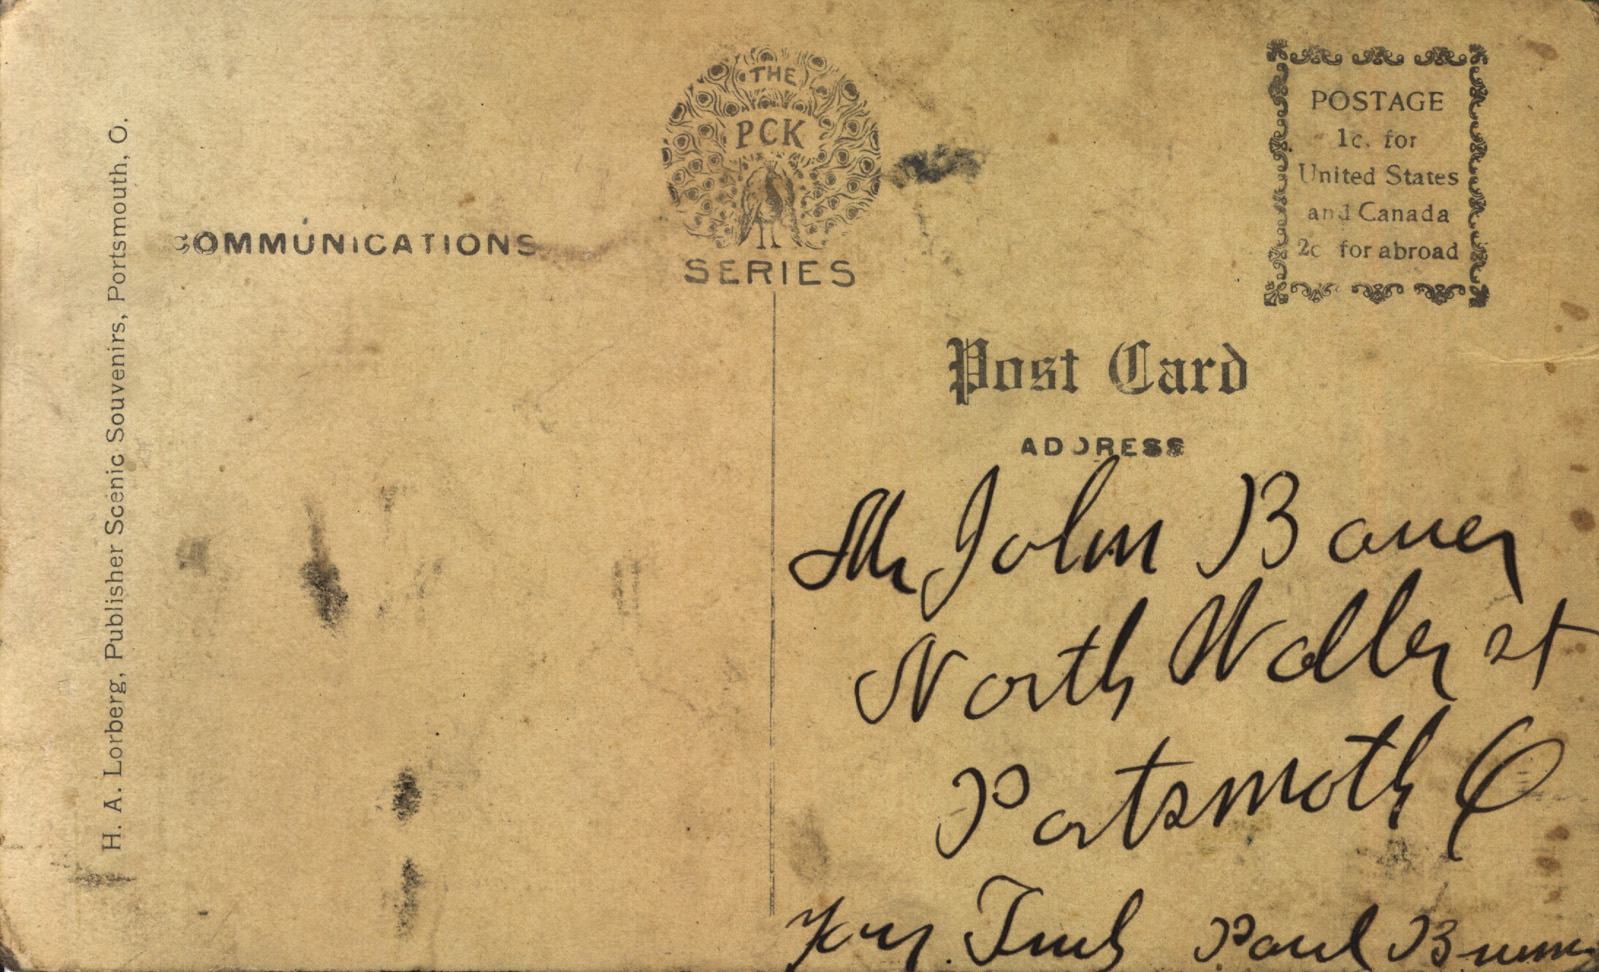 H. A. Lorberg, Publisher Scenic Souvenirs, Portsmouth, O.
COMMUNICATIONS
THE
PCK
SERIES
POSTAGE
1c. for
United States
and Canada
2c for abroad
Post Card
ADDRESS
Mr John Bauer
North Waller st
Portsmoth O
Paul